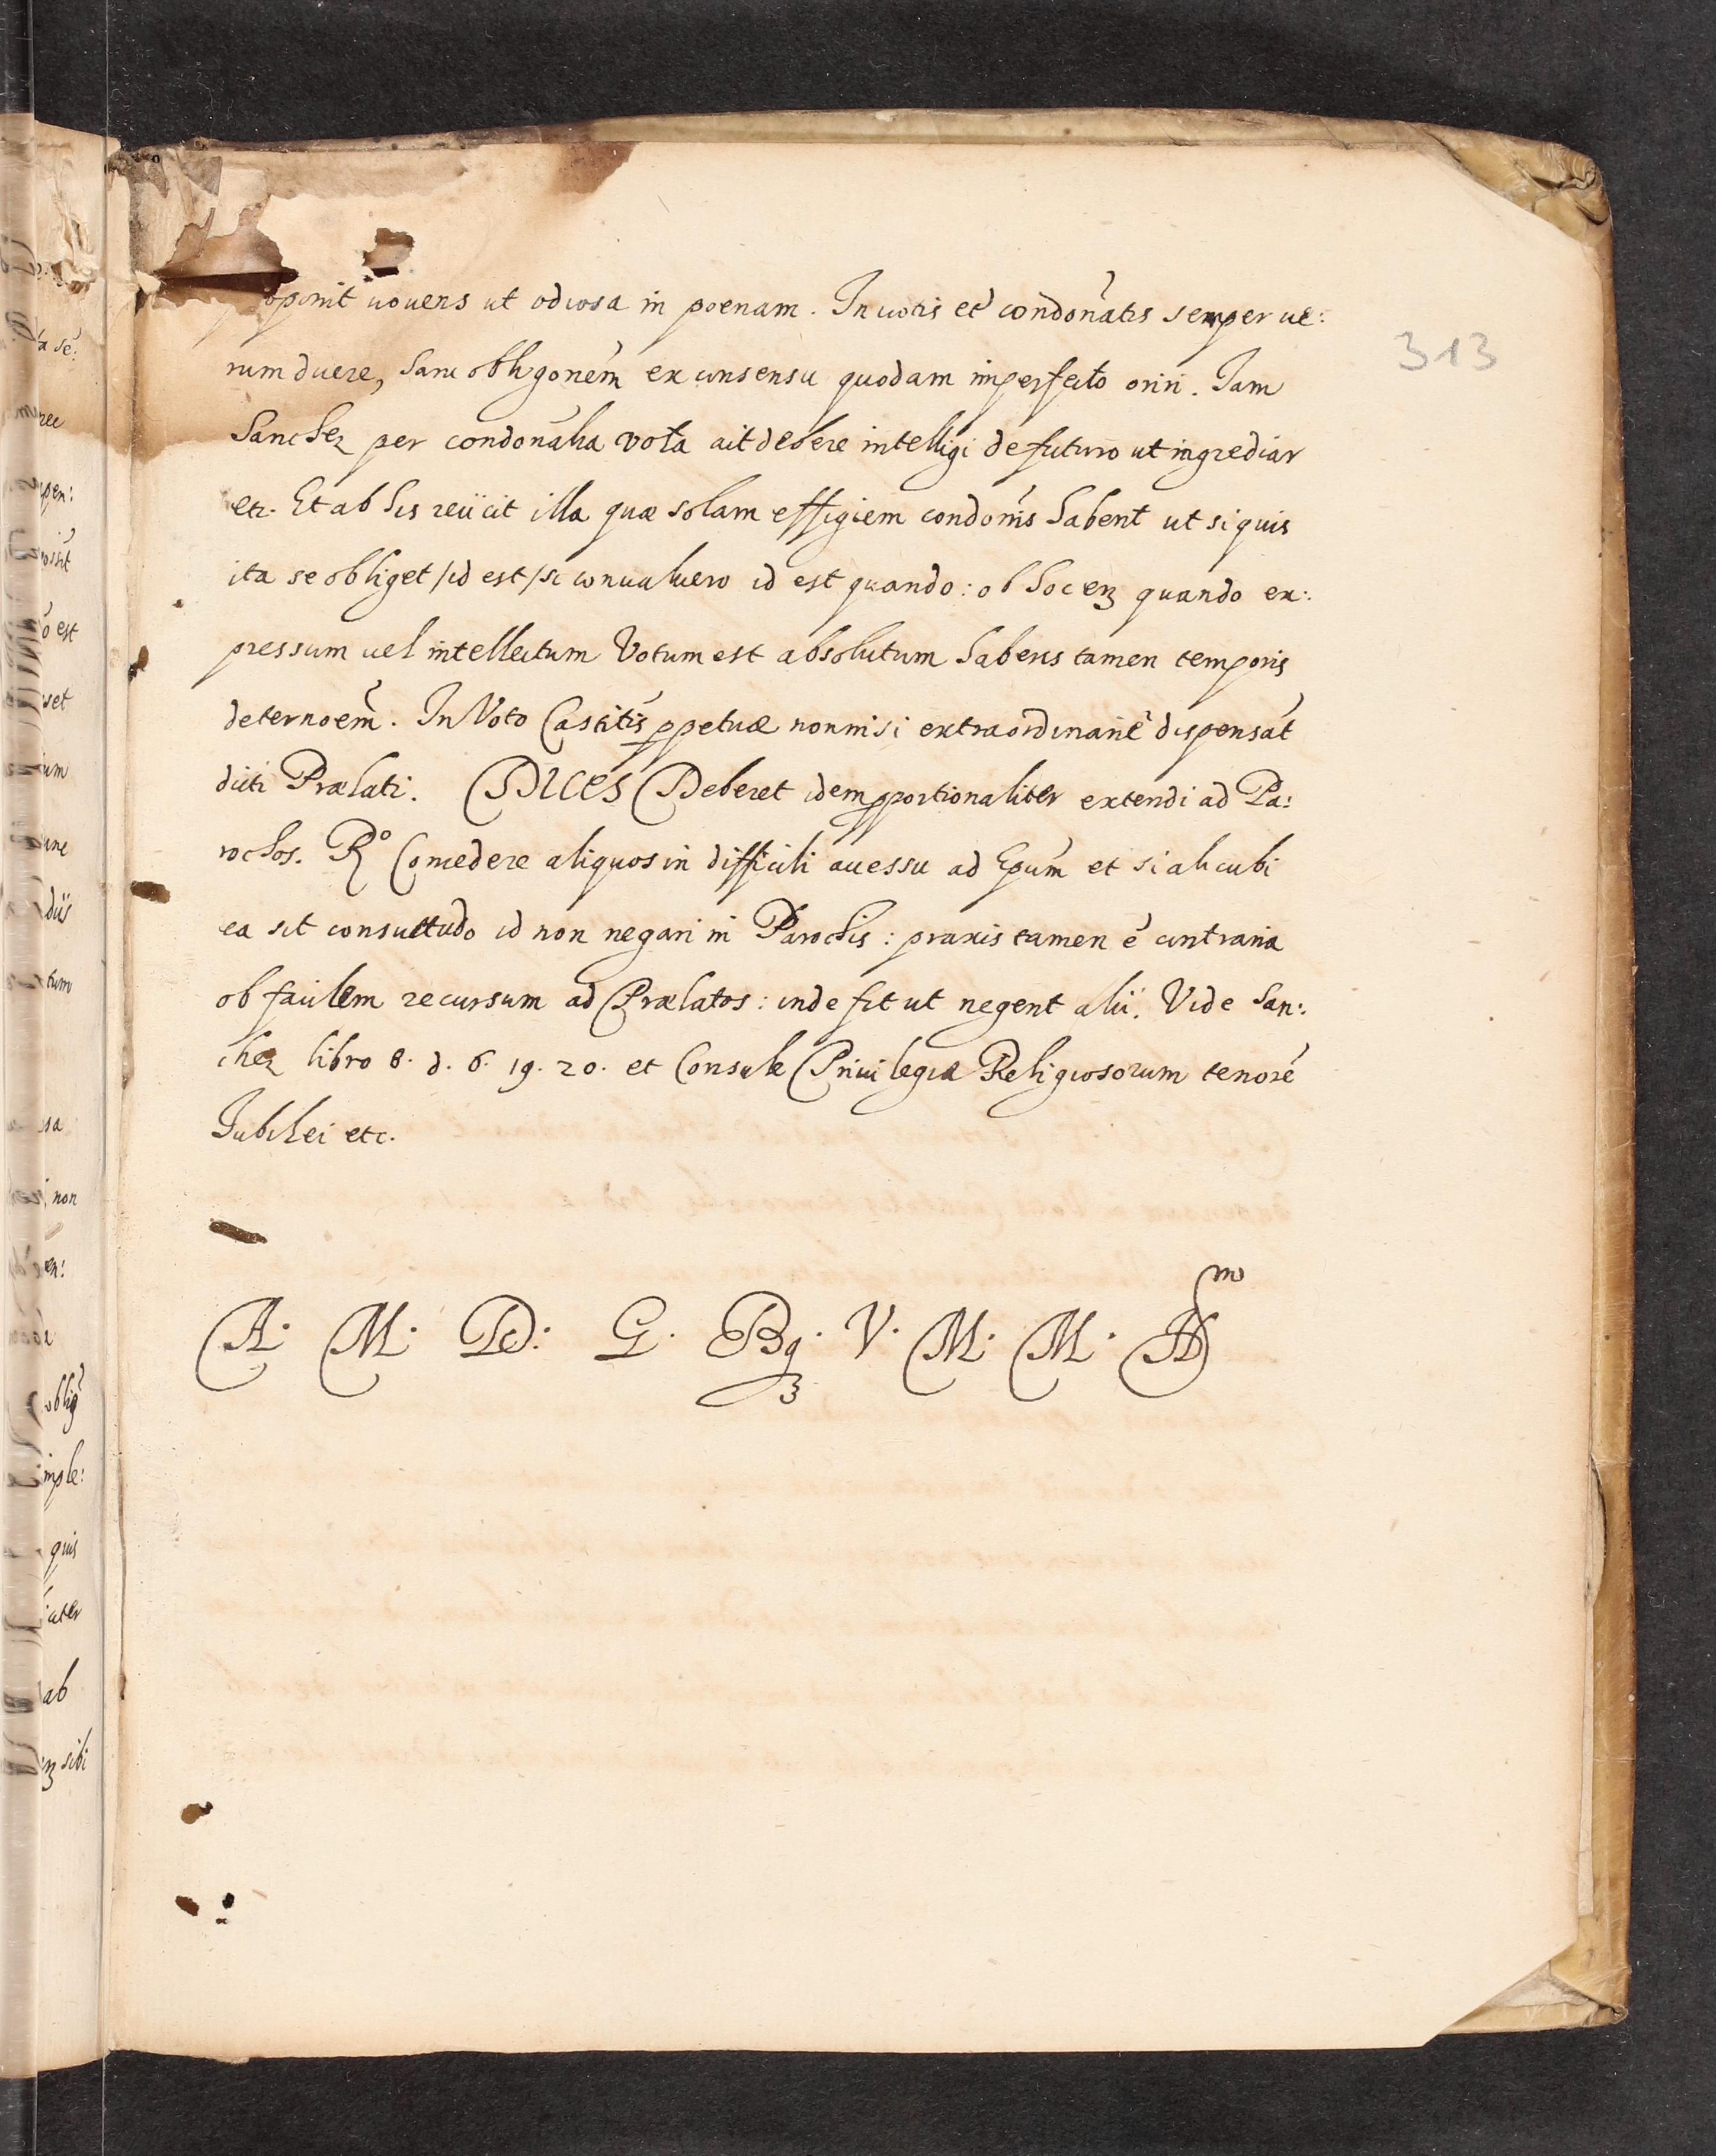 313
opinit uouens ut odiosa in poenam. In uotis et condonatis semper ue:
rum ducere, hanc obligonem ex consensu quodam imperfecto oriri. Iam
Sanchez per condonalia vota ait debere intelligi de futuro ut ingrediar
etc. Et ab his reiicit illa quæ solam effigiem condonis habent ut si quis
ita se obliget /id est/ si conualuero id est quando: ob hoc enz quando ex:
pressum uel intellectum Votum est absolutum habens tamen temporis
deternoem. In Voto Castitis ppetuæ non nisi extraordinarie dispensat
dicti Prælati. DICES Deberet idem pportionaliter extendi ad Pa:
rochos. Ro Comedere aliquos in difficili accessu ad Epum et si alicubi
ea sit consuetudo id non negari in Parochis: praxis tamen e contraria
ob facilem recursum ad Prælatos: inde fit ut negent alii. Vide San:
chez libro 8. d. 6. 19. 20. et Consule Priuilegia Religiosorum tenore
Iubilei etc.
A. M. D. G. Bq. V. M. M. H m